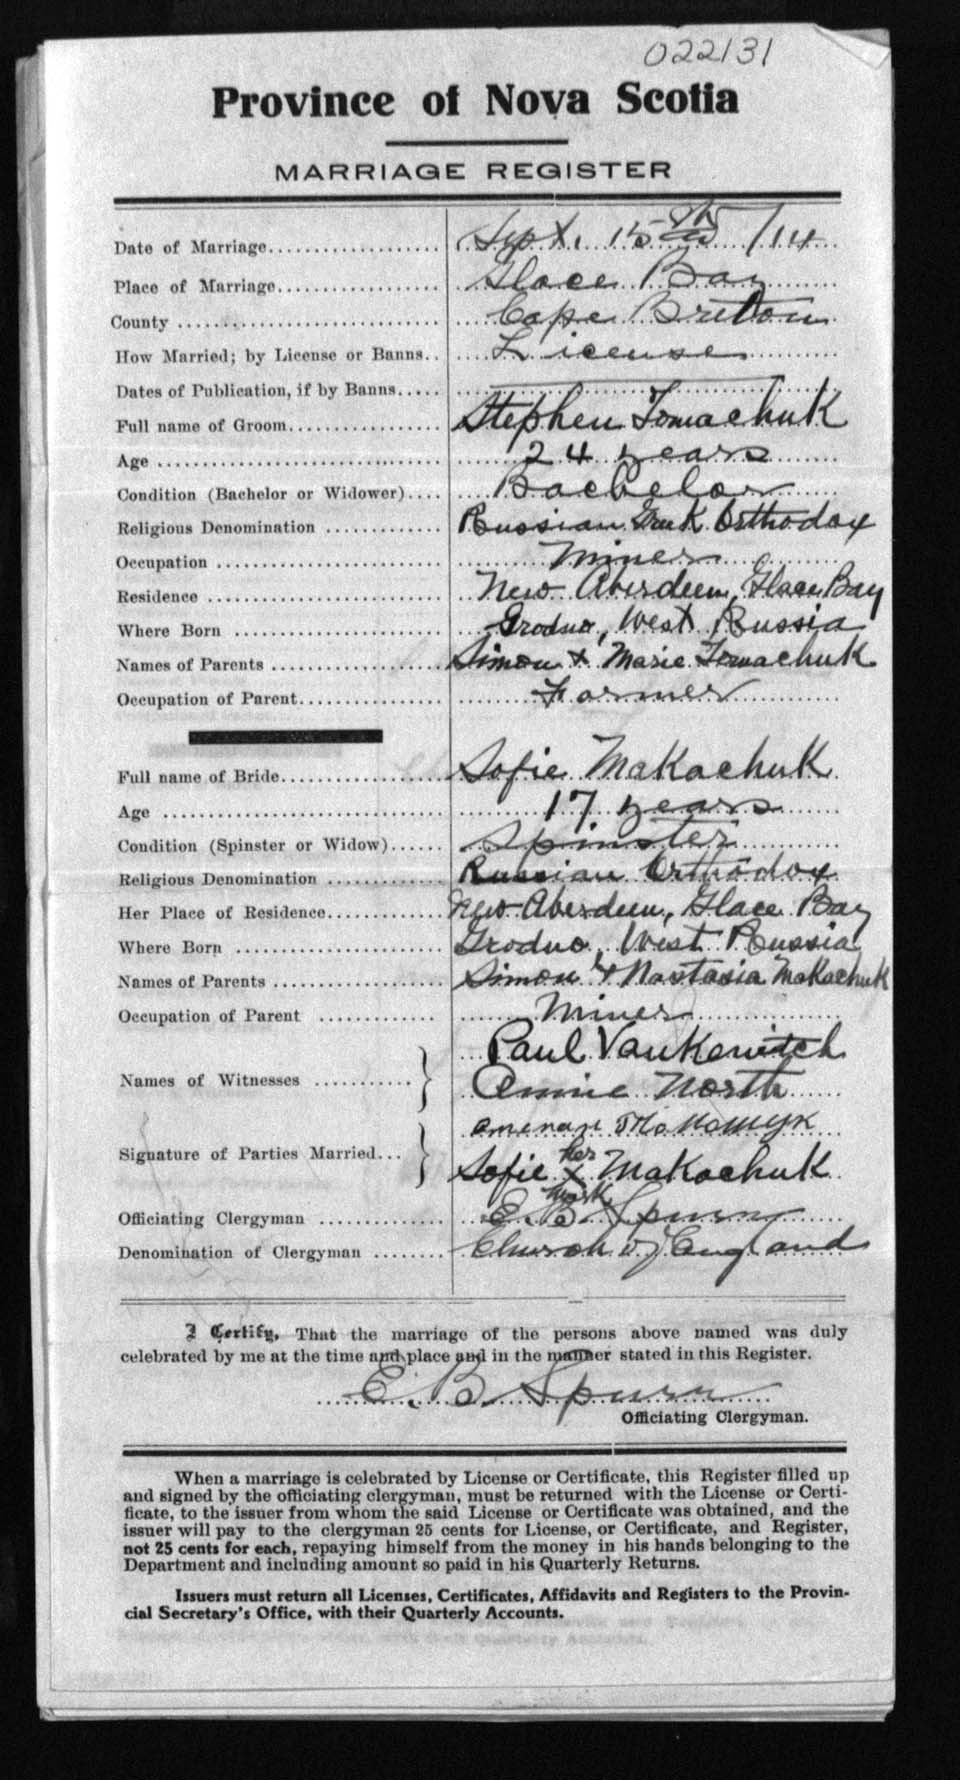 022131
Province of Nova Scotia
MARRIAGE REGISTER
Date of Marriage.................... Sept. 15th /14
Place of Marriage................... Glace Bay
County ............................. Cape Breton
How Married; by License or Banns.. License
Dates of Publication, if by Banns..... —
Full name of Groom................. Stephen Tomachuk
Age ................................ 24 years
Condition (Bachelor or Widower).... Bachelor
Religious Denomination ............. Russian Greek Orthodox
Occupation .......................... Miner
Residence ........................... New Aberdeen, Glace Bay
Where Born ........................ Grodno, West Russia
Names of Parents ................... Simon & Marie Tomachuk
Occupation of Parent................. Farmer
Full name of Bride................... Sofie Makachuk
Age ................................ 17 years
Condition (Spinster or Widow)...... Spinster
Religious Denomination ............. Russian Orthodox
Her Place of Residence............. New Aberdeen, Glace Bay
Where Born ........................ Grodno, West Russia
Names of Parents ................... Simon & Nastasia Makachuk
Occupation of Parent ............. Miner
Names of Witnesses ........... } Paul Vankewitch
Annie North
Signature of Parties Married... }
Sofie her x mark Makachuk
Officiating Clergyman .............. E. B. Spurr
Denomination of Clergyman ........ Church of England
I Certify, That the marriage of the persons above named was duly
celebrated by me at the time and place and in the manner stated in this Register.
E. B. Spurr
Officiating Clergyman.
When a marriage is celebrated by License or Certificate, this Register filled up
and signed by the officiating clergyman, must be returned with the License or Certi-
ficate, to the issuer from whom the said License or Certificate was obtained, and the
issuer will pay to the clergyman 25 cents for License, or Certificate, and Register,
not 25 cents for each, repaying himself from the money in his hands belonging to the
Department and including amount so paid in his Quarterly Returns.
Issuers must return all Licenses, Certificates, Affidavits and Registers to the Provin-
cial Secretary's Office, with their Quarterly Accounts.